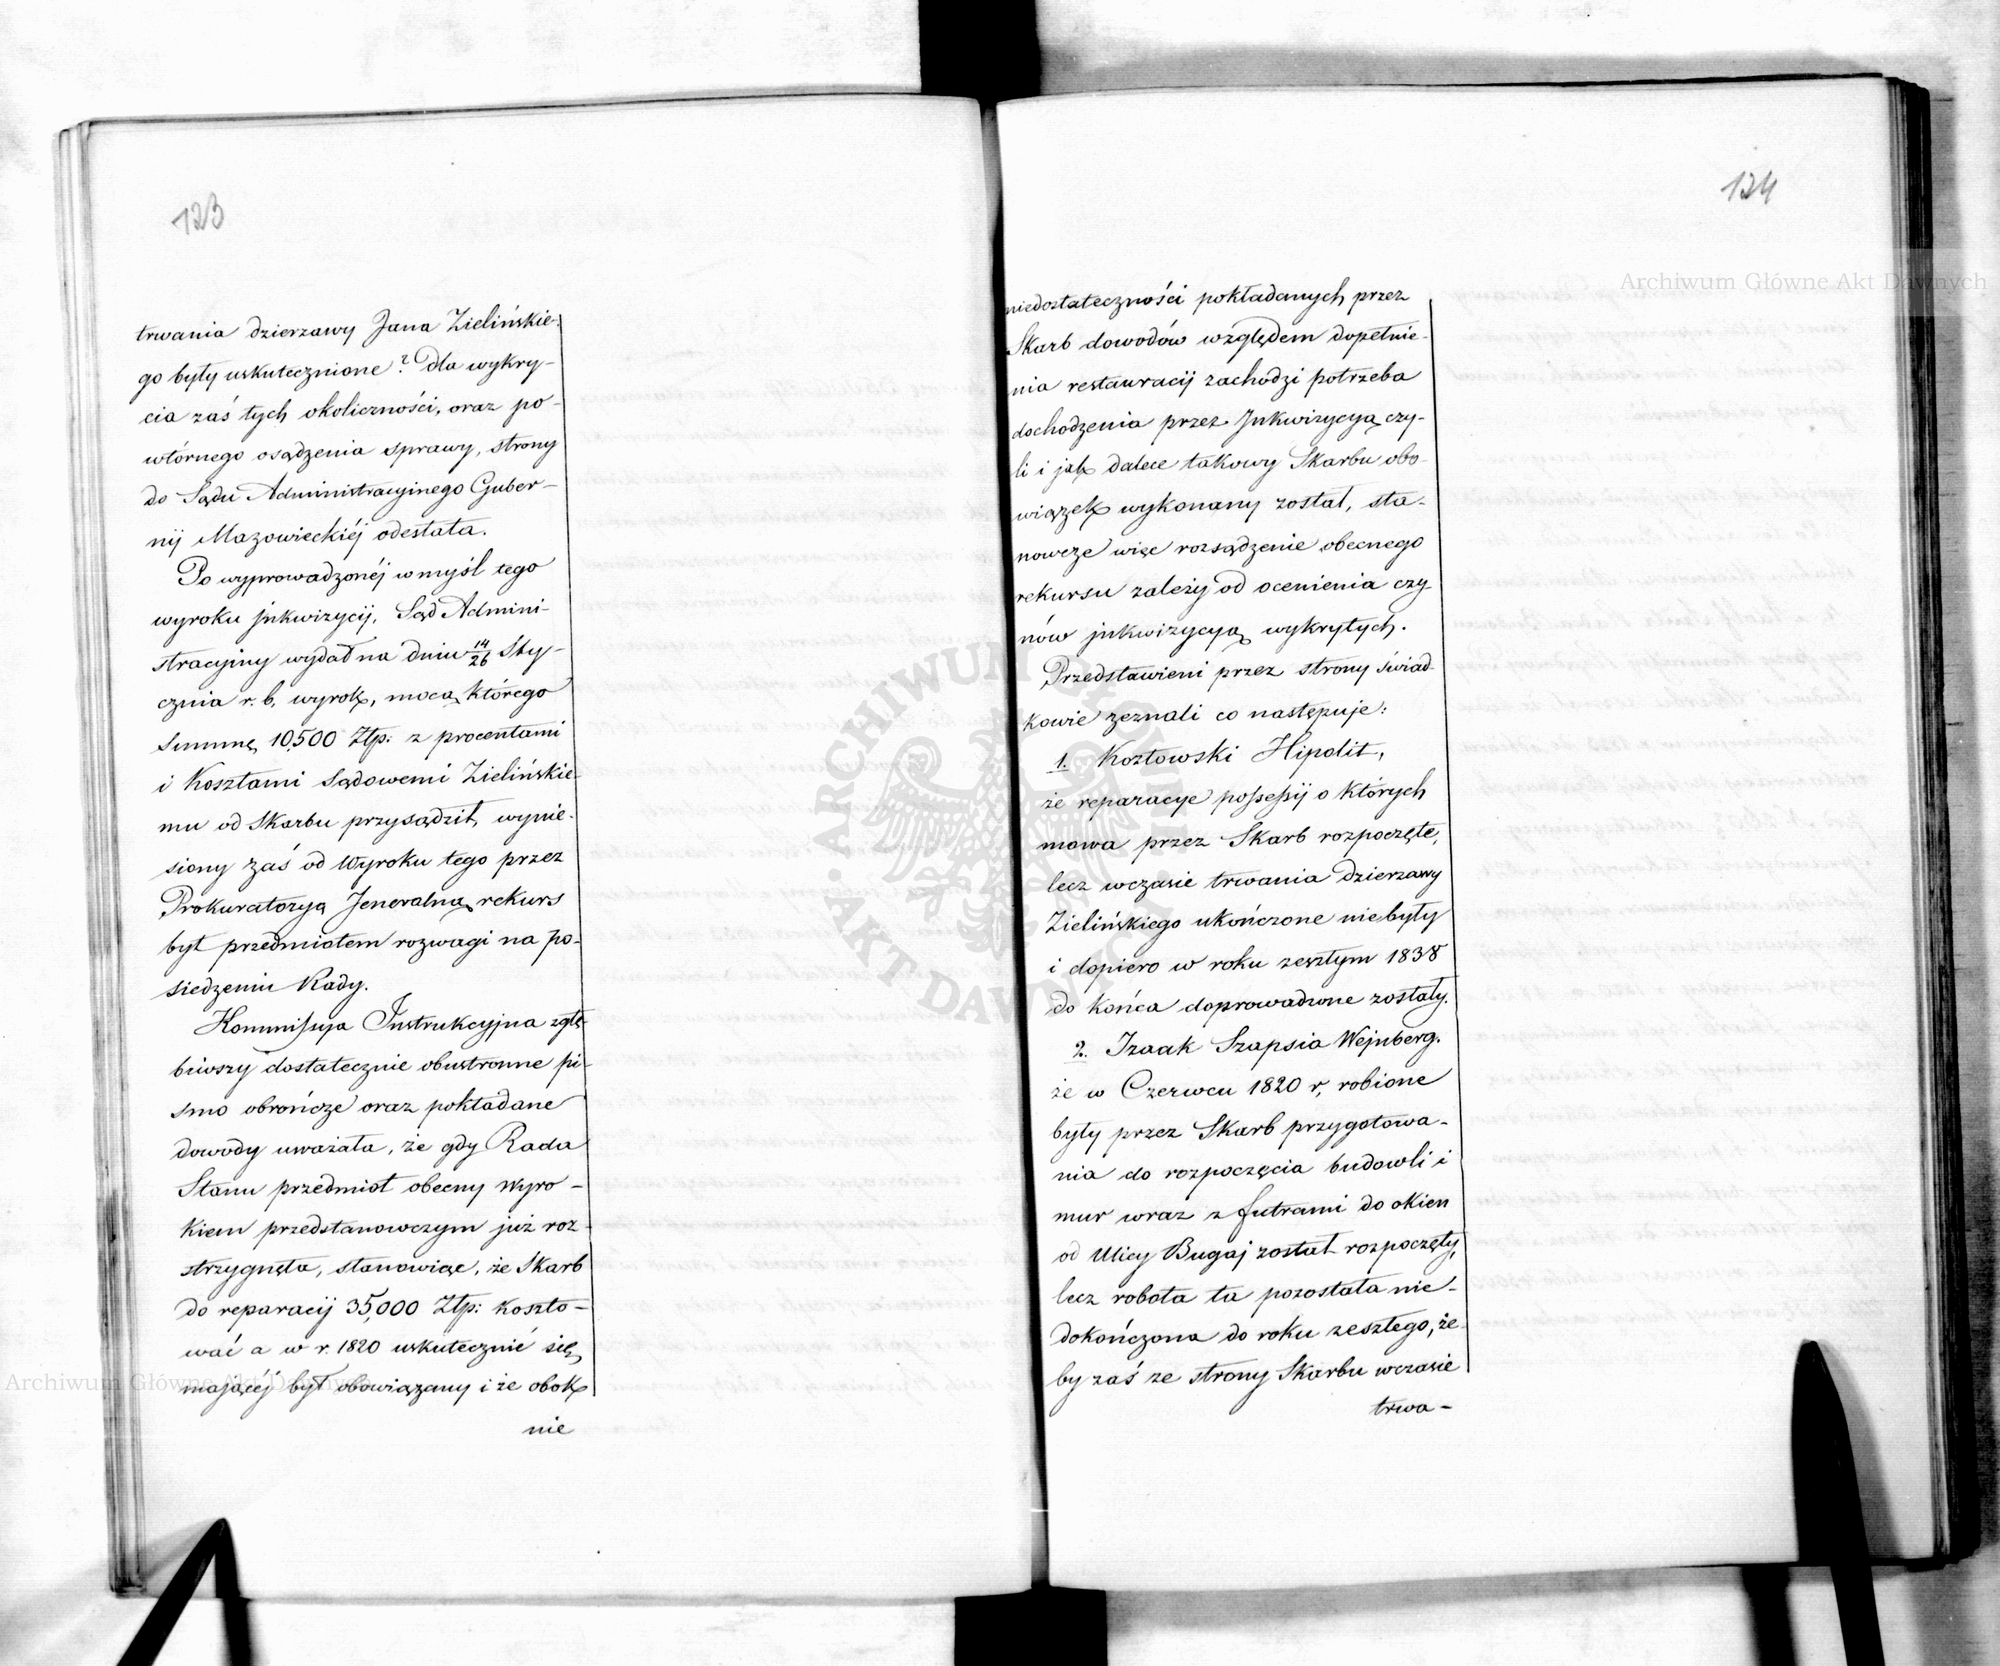 123
trwania dzierzawy Jana Zielińskie-
go były uskutecznione? dla wykry-
cia zaś tych okoliczności, oraz po-
wtórnego osądzenia sprawy, strony
do Sądu Administracyinego Guber-
nij Mazowieckiéj odesłała.
Po wyprowadzonéj w myśl tego
wyroku jnkwizycij, Sąd Admini-
stracyiny wydał na dniu 14/26 Sty-
cznia r. b. wyrok, mocą którego
Summę 10,500 Złp: z procentami
i Kosztami Sądowemi Zielińskie-
mu od Skarbu przysądził, wynie-
siony zaś od Wyroku tego przez
Prokuratoryą Jeneralną rekurs
był przedmiotem rozwagi na po-
siedzeniu Rady.
Kommissya Instrukcyjna zgłę-
biwszy dostatecznie obustronne pi-
smo obrończe oraz pokładane
dowody uważała, że gdy Rada
Stanu przedmiot obecny wyro-
kiem przedstanowczym już roz-
strzygnęła, stanowiąc, że Skarb
do reparacij 35,000 Złp: koszto-
wać a w r. 1820 uskutecznić się
mającéj był obowiązany i że obok
nie
124
niedostateczności pokładanych przez
Skarb dowodów względem dopełnie-
nia restauracij zachodzi potrzeba
dochodzenia przez Jnkwizycyą czy-
li i jak dalece takowy Skarbu obo-
wiązek wykonany został, sta-
nowcze więc rozsądzenie obecnego
rekursu zależy od ocenienia czy-
nów jnkwizycyą wykrytych.
Przedstawieni przez strony świad-
kowie zeznali co następuje:
1. Kozłowski Hipolit,
że reparacye possessij o których
mowa przez Skarb rozpoczęte,
lecz wczasie trwania dzierzawy
Zielińskiego ukończone niebyły
i dopiero w roku zeszłym 1838
do końca doprowadzone zostały.
2. Izaak Szapsia Wejnberg.
że w Czerwcu 1820 r, robione
były przez Skarb przygotowa-
nia do rozpoczęcia budowli i
mur wraz z futrami do okien
od Ulicy Bugaj został rozpoczęty,
lecz robota ta pozostała nie-
dokończona do roku zeszłego, że
by zaś ze strony Skarbu wczasie
trwa-
Archiwum Główne Akt Dawnych
Archiwum Główne Akt Dawnych